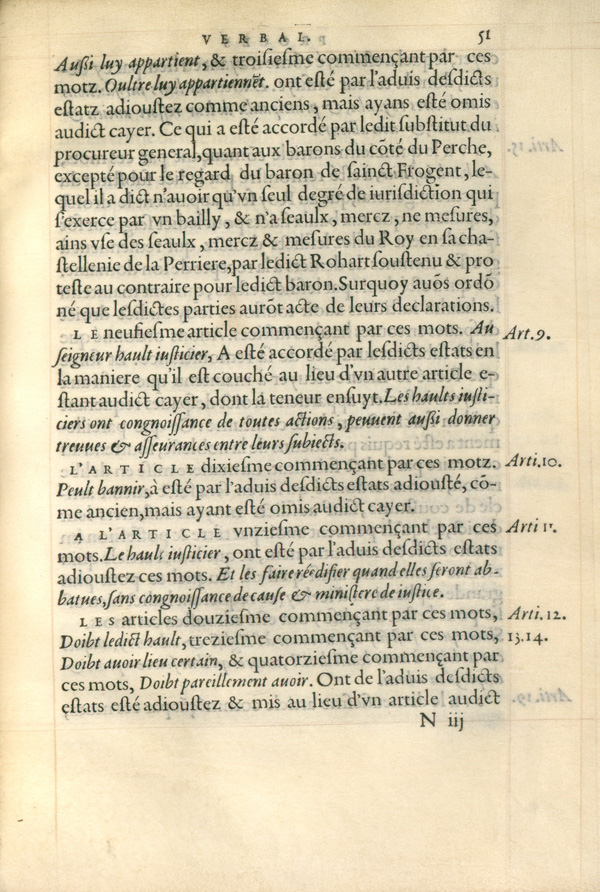 VERBAL. 51
Aussi luy appartient, & troisiesme commençant par ces
motz. Oultre luy appartiennẽt. ont esté par l'aduis desdicts
estatz adioustez comme anciens, mais ayans esté omis
audict cayer. Ce qui a esté accordé par ledit substitut du
procureur general, quant aux barons du côté du Perche,
excepté pour le regard du baron de sainct Frogent, le-
quel il a dict n'auoir qu'vn seul degré de iurisdiction qui
s'exerce par vn bailly, & n'a seaulx, mercz, ne mesures,
ains vse des seaulx, mercz & mesures du Roy en sa cha-
stellenie de la Perriere, par ledict Rohart soustenu & pro
teste au contraire pour ledict baron. Surquoy auõs ordõ
né que lesdictes parties aurõt acte de leurs declarations.
LE neufiesme article commençant par ces mots. Au Art.9.
seigneur hault iusticier, A esté accordé par lesdicts estats en
la maniere qu'il est couché au lieu d'vn autre article e-
stant audict cayer, dont la teneur ensuyt. Les haults iusti-
ciers ont congnoissance de toutes actions, peuuent aussi donner
treuues & asseurances entre leurs subiects.
L'ARTICLE dixiesme commençant par ces motz. Arti.10.
Peult bannir, à esté par l'aduis desdicts estats adiousté, cõ-
me ancien, mais ayant esté omis audict cayer.
A L'ARTICLE vnziesme commençant par ces Arti 11.
mots. Le hault iusticier, ont esté par l'aduis desdicts estats
adioustez ces mots. Et les faire réedifier quand elles seront ab-
batues, sans congnoissance de cause & ministere de iustice.
LES articles douziesme commençant par ces mots, Arti.12.
Doibt ledict hault, treziesme commençant par ces mots, 13.14.
Doibt auoir lieu certain, & quatorziesme commençant par
ces mots, Doibt pareillement auoir. Ont de l'aduis desdicts
estats esté adioustez & mis au lieu d'vn article audict
N iij